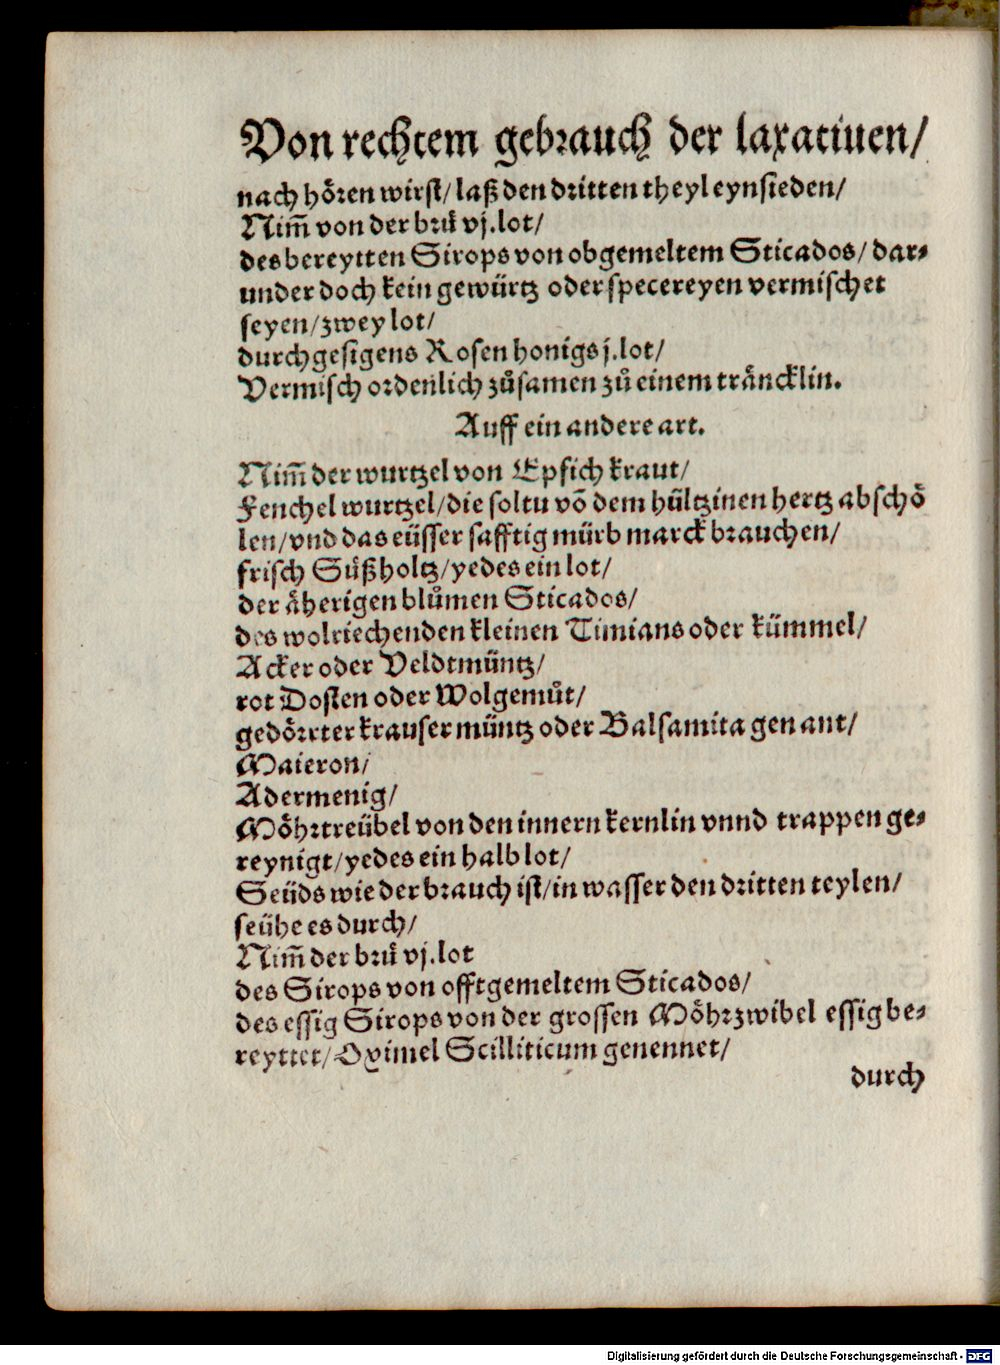 Von rechtem gebrauch der laxatiuen/
nach hoͤren wirst/ laß den dritten theyl eynsieden/
Nim̃ von der bruͤ vj. lot/
des bereytten Sirops von obgemeltem Sticados/ dar⸗
under doch kein gewürtz oder specereyen vermischet
seyen/ zwey lot/
durchgesigens Rosen honigs j. lot/
Vermisch ordenlich zuͦsamen zuͦ einem traͤncklin.
Auff ein andere art.
Nim̃ der wurtzel von Epfich kraut/
Fenchel wurtzel/ die soltu võ dem hültzinen hertz abschoͤ
len/ vnd das eüsser safftig mürb marck brauchen/
frisch Suͤßholtz/ yedes ein lot/
der aͤherigen bluͦmen Sticados/
des wolriechenden kleinen Timians oder kümmel/
Acker oder Veldtmüntz/
rot Dosten oder Wolgemuͦt/
gedoͤrrter krauser müntz oder Balsamita genant/
Maieron/
Adermenig/
Moͤhrtreübel von den innern kernlin vnnd trappen ge⸗
reynigt/ yedes ein halb lot/
Seüds wie der brauch ist/ in wasser den dritten teylen/
seühe es durch/
Nim̃ der bruͤ vj. lot
des Sirops von offtgemeltem Sticados/
des essig Sirops von der grossen Moͤhrzwibel essig be⸗
reyttet/ Oximel Scilliticum genennet/
durch
Digitalisierung gefördert durch die Deutsche Forschungsgemeinschaft - DFG